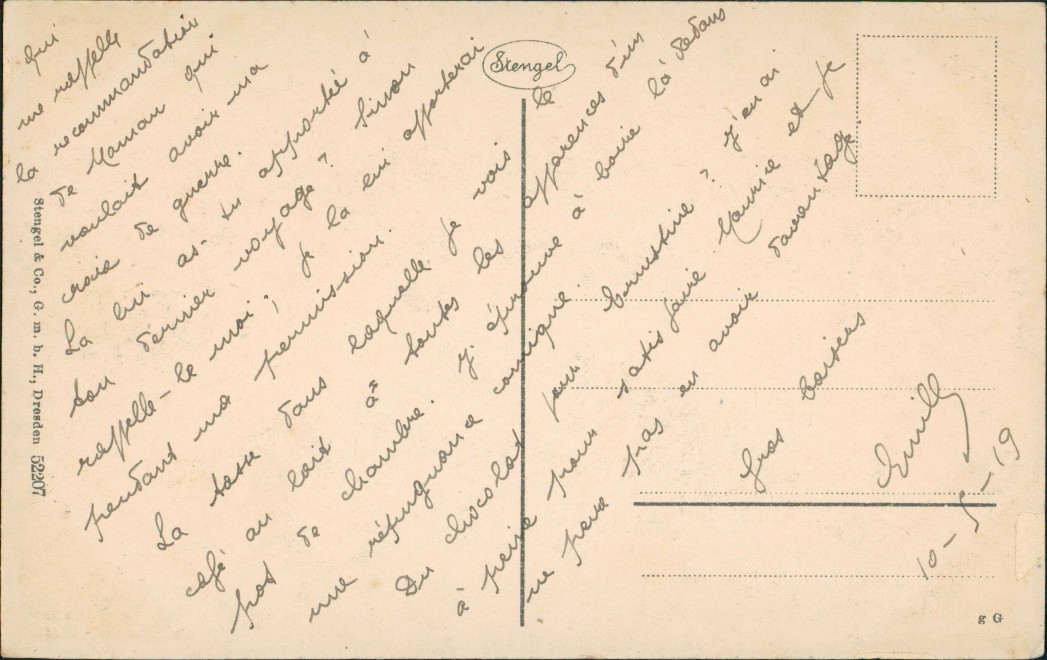 Stengel
qui
me rappelle
la recommandation
de Maman qui
voulait avoir ma
croix de guerre.
La lui as-tu apportée à
ton dernier voyage ? Sinon
rappelle-le moi, je la lui apporterai
pendant ma permission.
La tasse dans laquelle je vois le
café au lait à toutes les apparences d'un
pot de chambre. J'éprouve à boire là dedans
une répugnance comique.
Du chocolat pour Ernestine ? J'en ai
à peine pour satisfaire Maurice et je
ne peux pas en avoir davantage
Gros baisers
Emile
10-5-19
Stengel & Co., G. m. b. H., Dresden 52207
g G